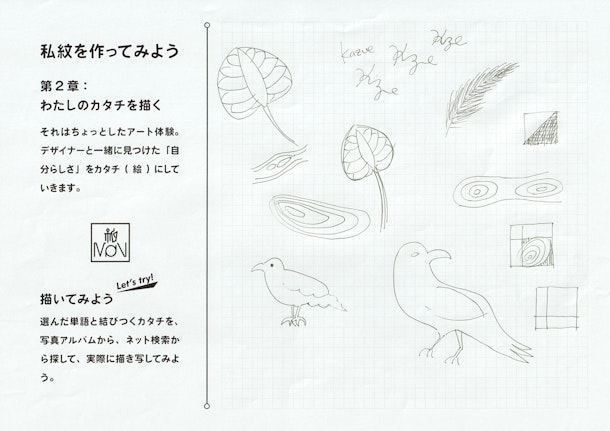 私紋を作ってみよう
第2章：
わたしのカタチを描く
それはちょっとしたアート体験。
デザイナーと一緒に見つけた「自
分らしさ」をカタチ ( 絵 ) にして
いきます。
Let's try!
描いてみよう
選んだ単語と結びつくカタチを、
写真アルバムから、ネット検索か
ら探して、実際に描き写してみよ
う。
Kazue